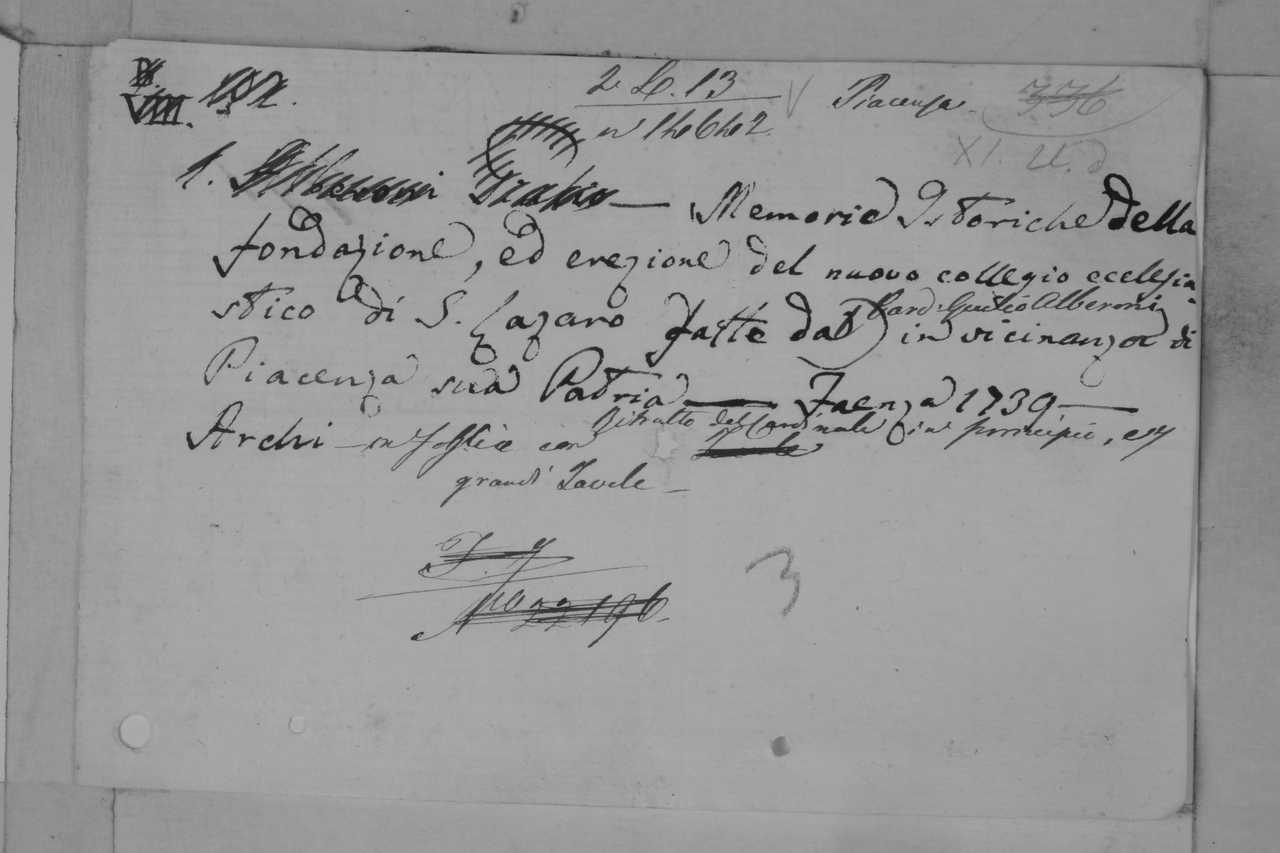 VIII.
2 L. 13
Piacenza
336
nº 14642
XI. U. d
1. Alberoni — Memorie Istoriche della
fondazione, ed erezione del nuovo collegio ecclesia
stico di S. Lazaro fatte dal Card. Giulio Alberoni in vicinanza di
Piacenza sua Patria — Faenza 1739 —
Archi — in foglio con Ritratto del Cardinale in principio, e
grandi Tavole —
Nº 22196.
3